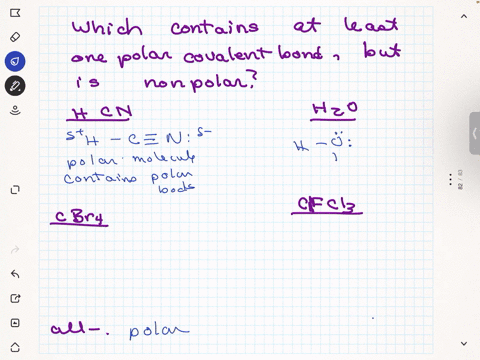 Which contains at least
one polar covalent bond, but
is nonpolar?
HCN
H2O
δ+ H - C ≡ N: δ-
polar molecule
contains polar
bods
H - O:
CBr4
CFCl3
all-. polar